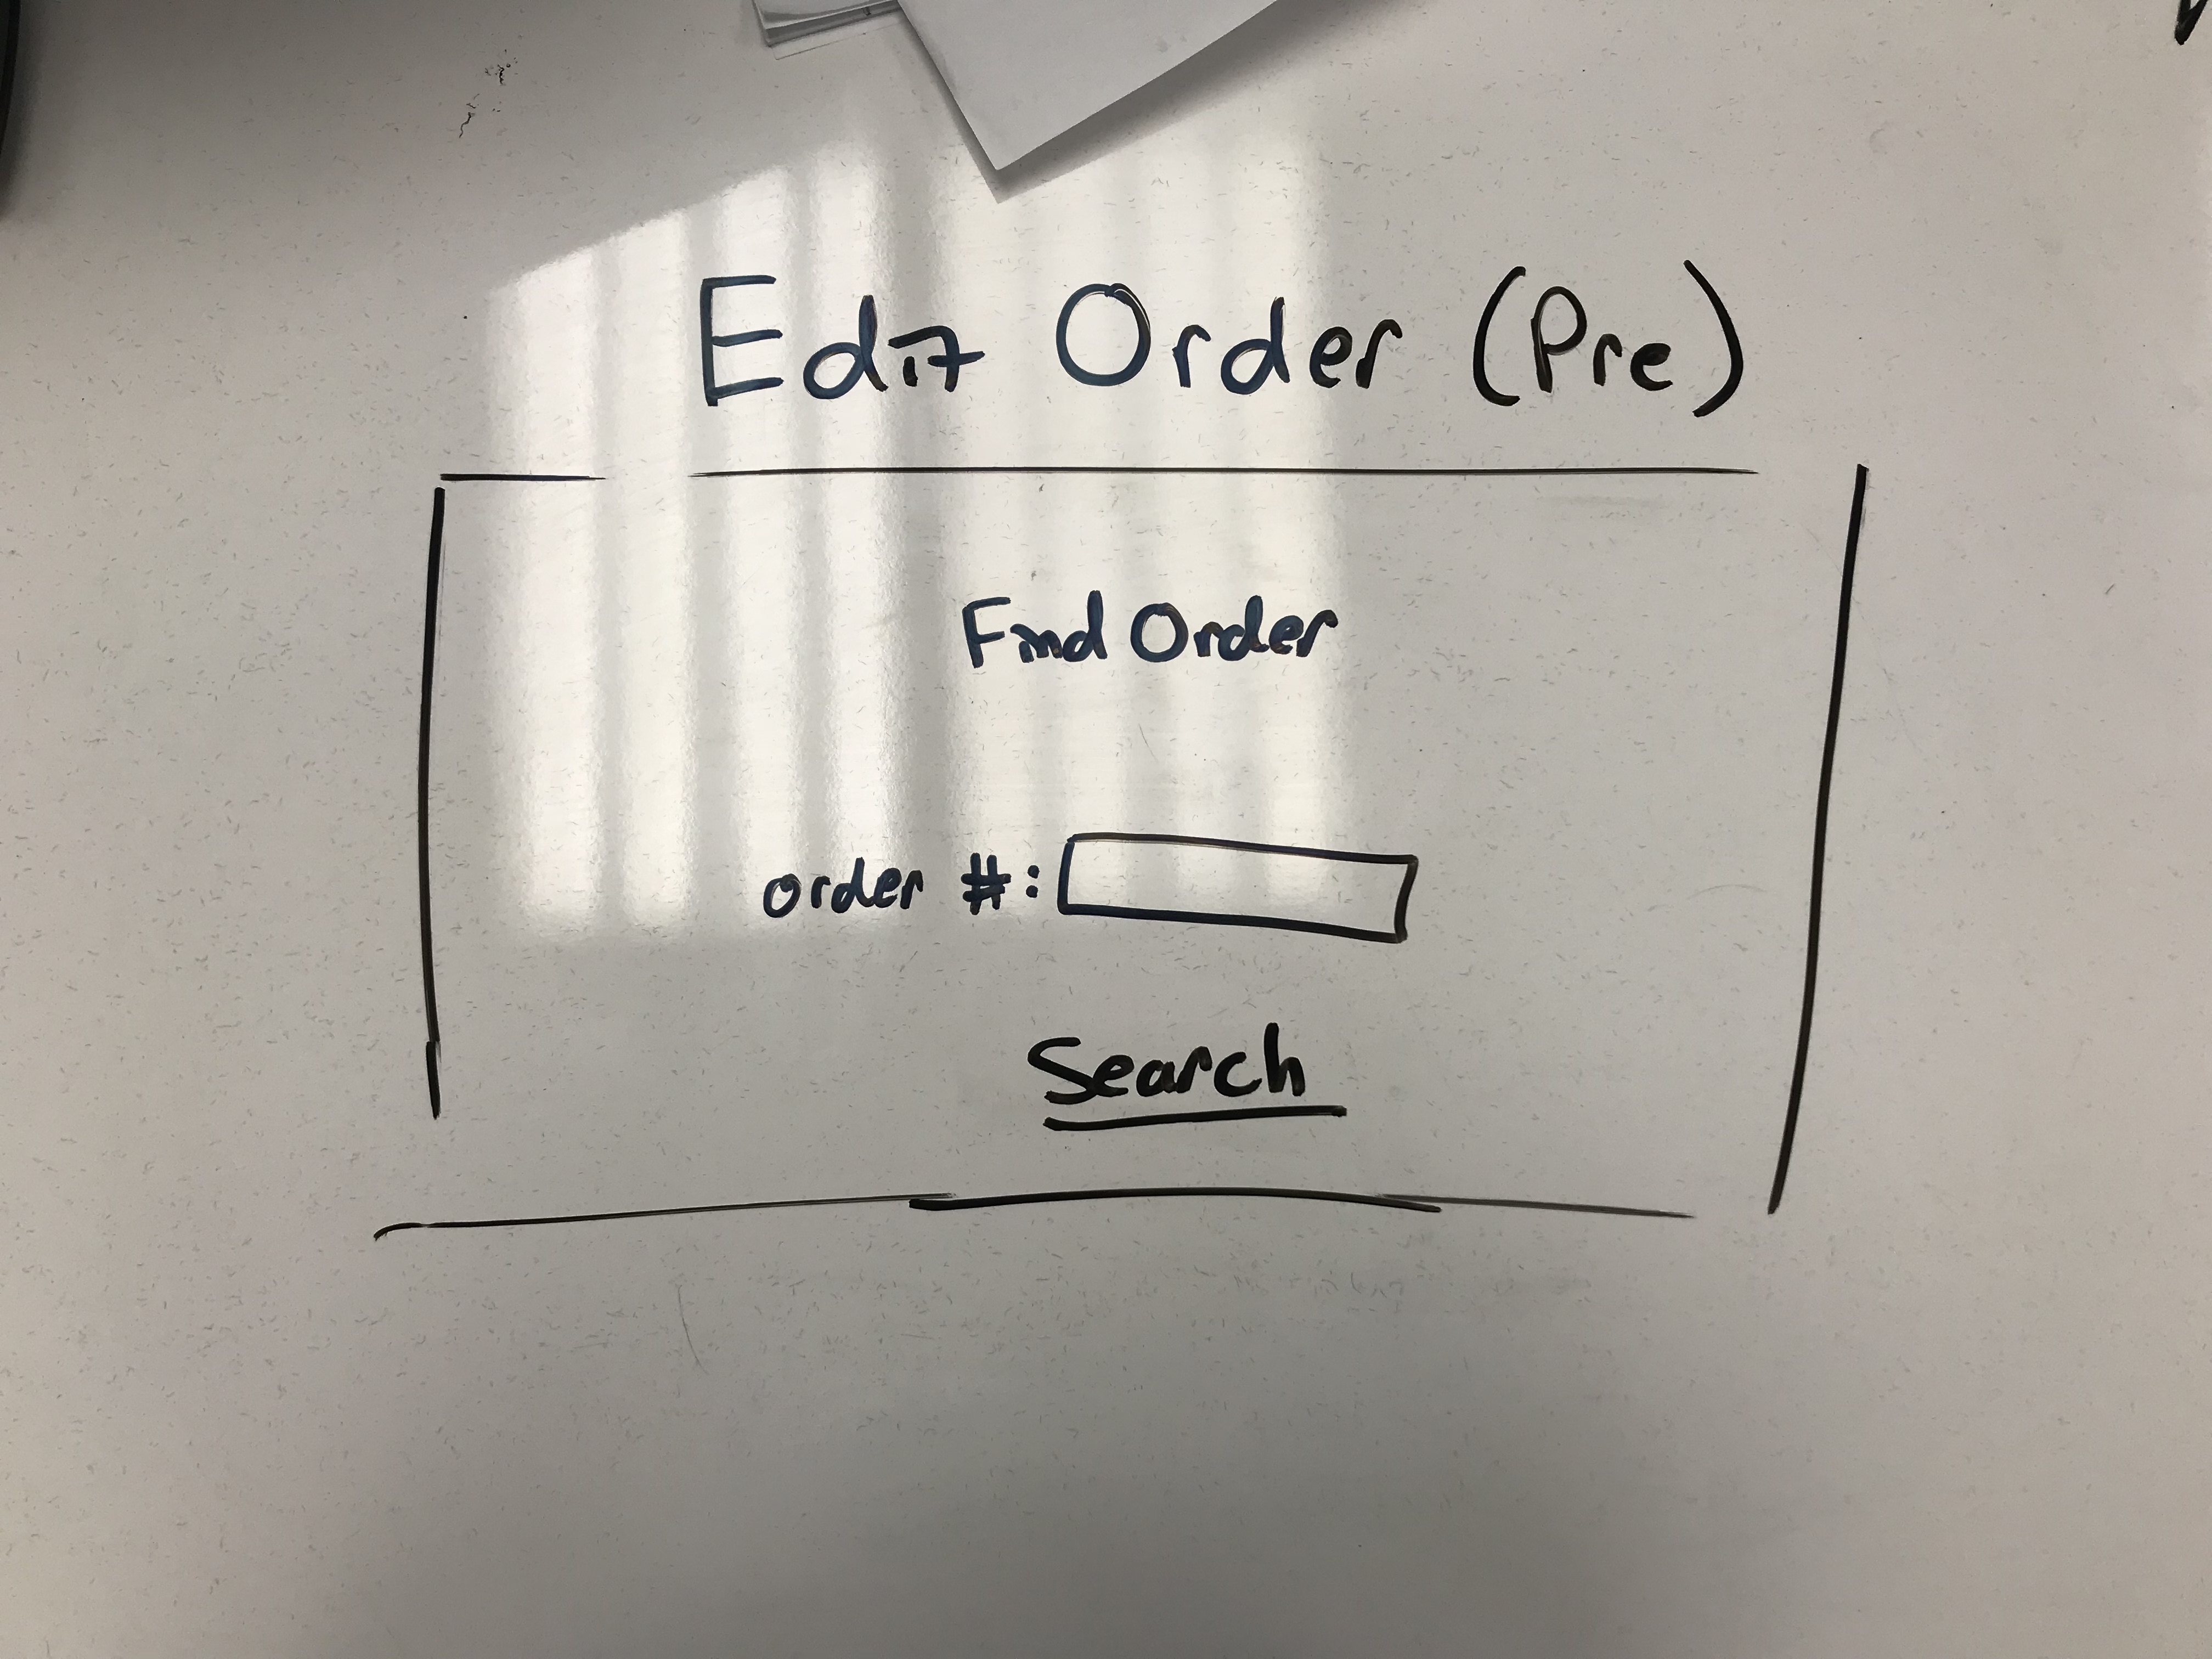 Edit Order (Pre)
Find Order
order #:
Search